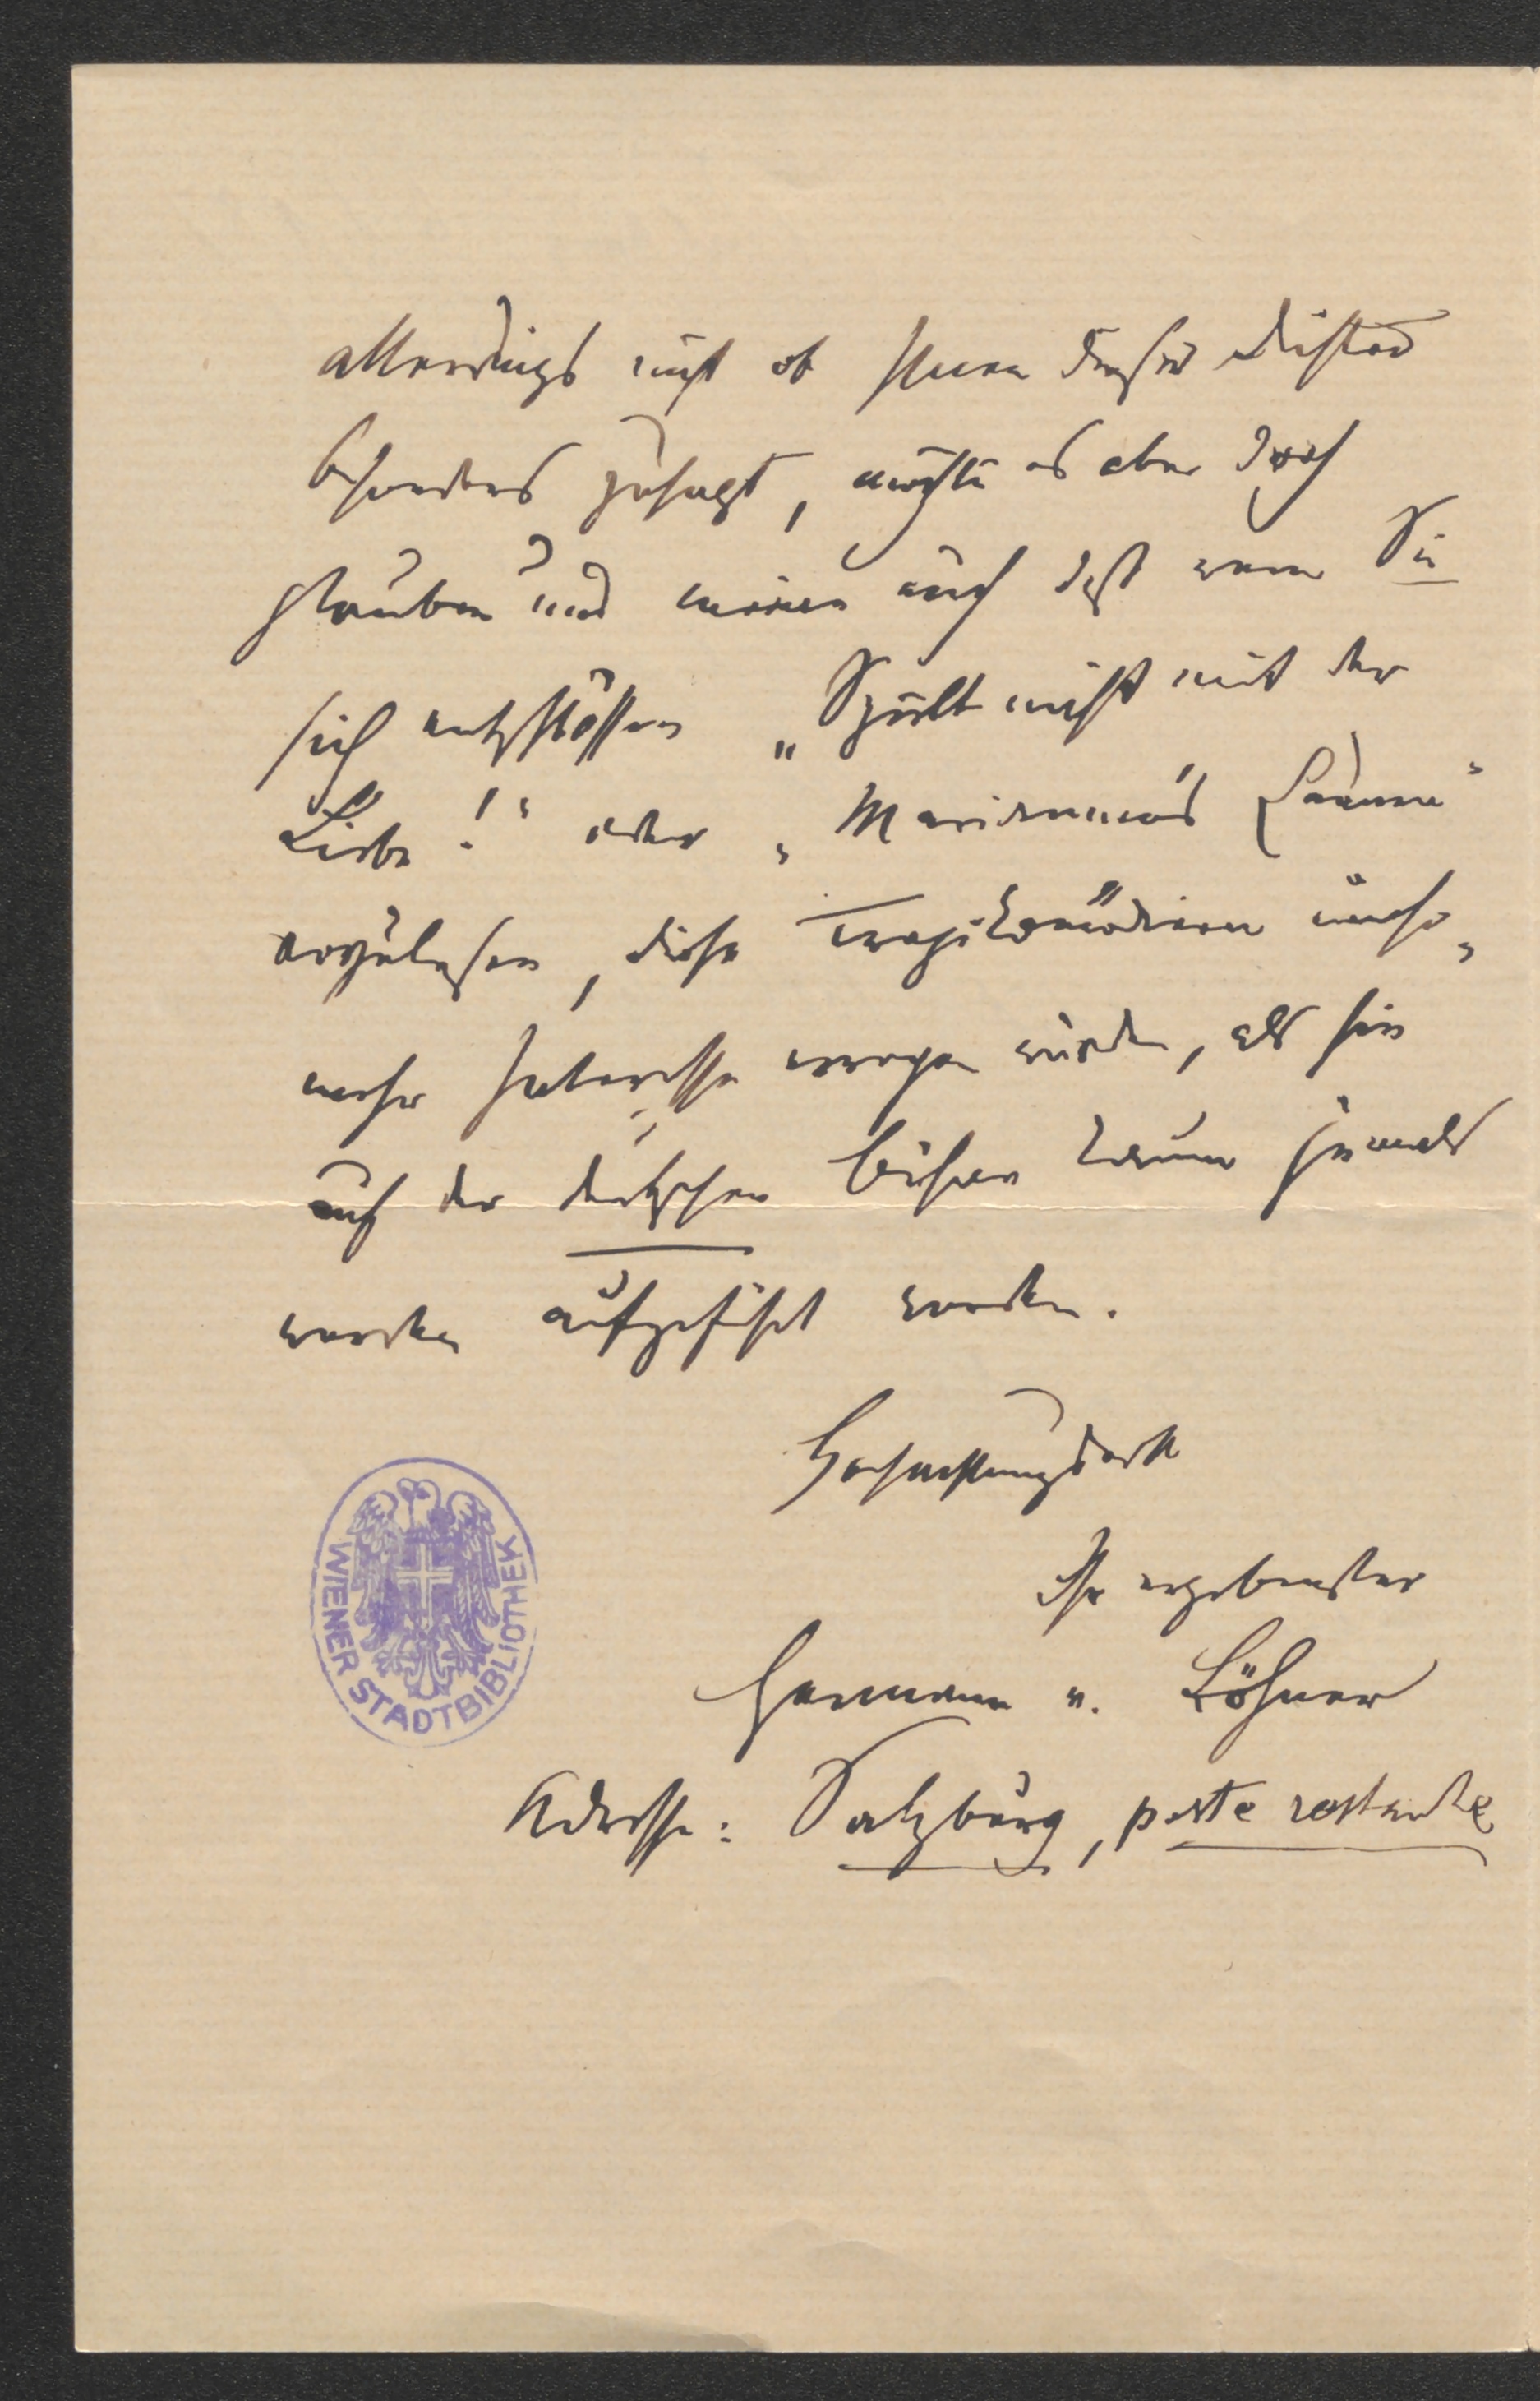 allerdings nicht ob Ihnen dieser Dichter
besonders zusagt, möchte es aber doch
glauben und meinen auch daß wenn Sie
sich entschlössen „Spielt nicht mit der
Liebe!" oder „Marianne's Laune"
vorzulesen, diese Tragikomödieen umso
mehr Interesse erregen würden, als sie
auf der deutschen Bühne kaum jemals
werden aufgeführt werden.
Hochachtungsvoll
Ihr ergebenster
Hermann v. Löhner
Adresse: Salzburg, poste restante
WIENER STADTBIBLIOTHEK